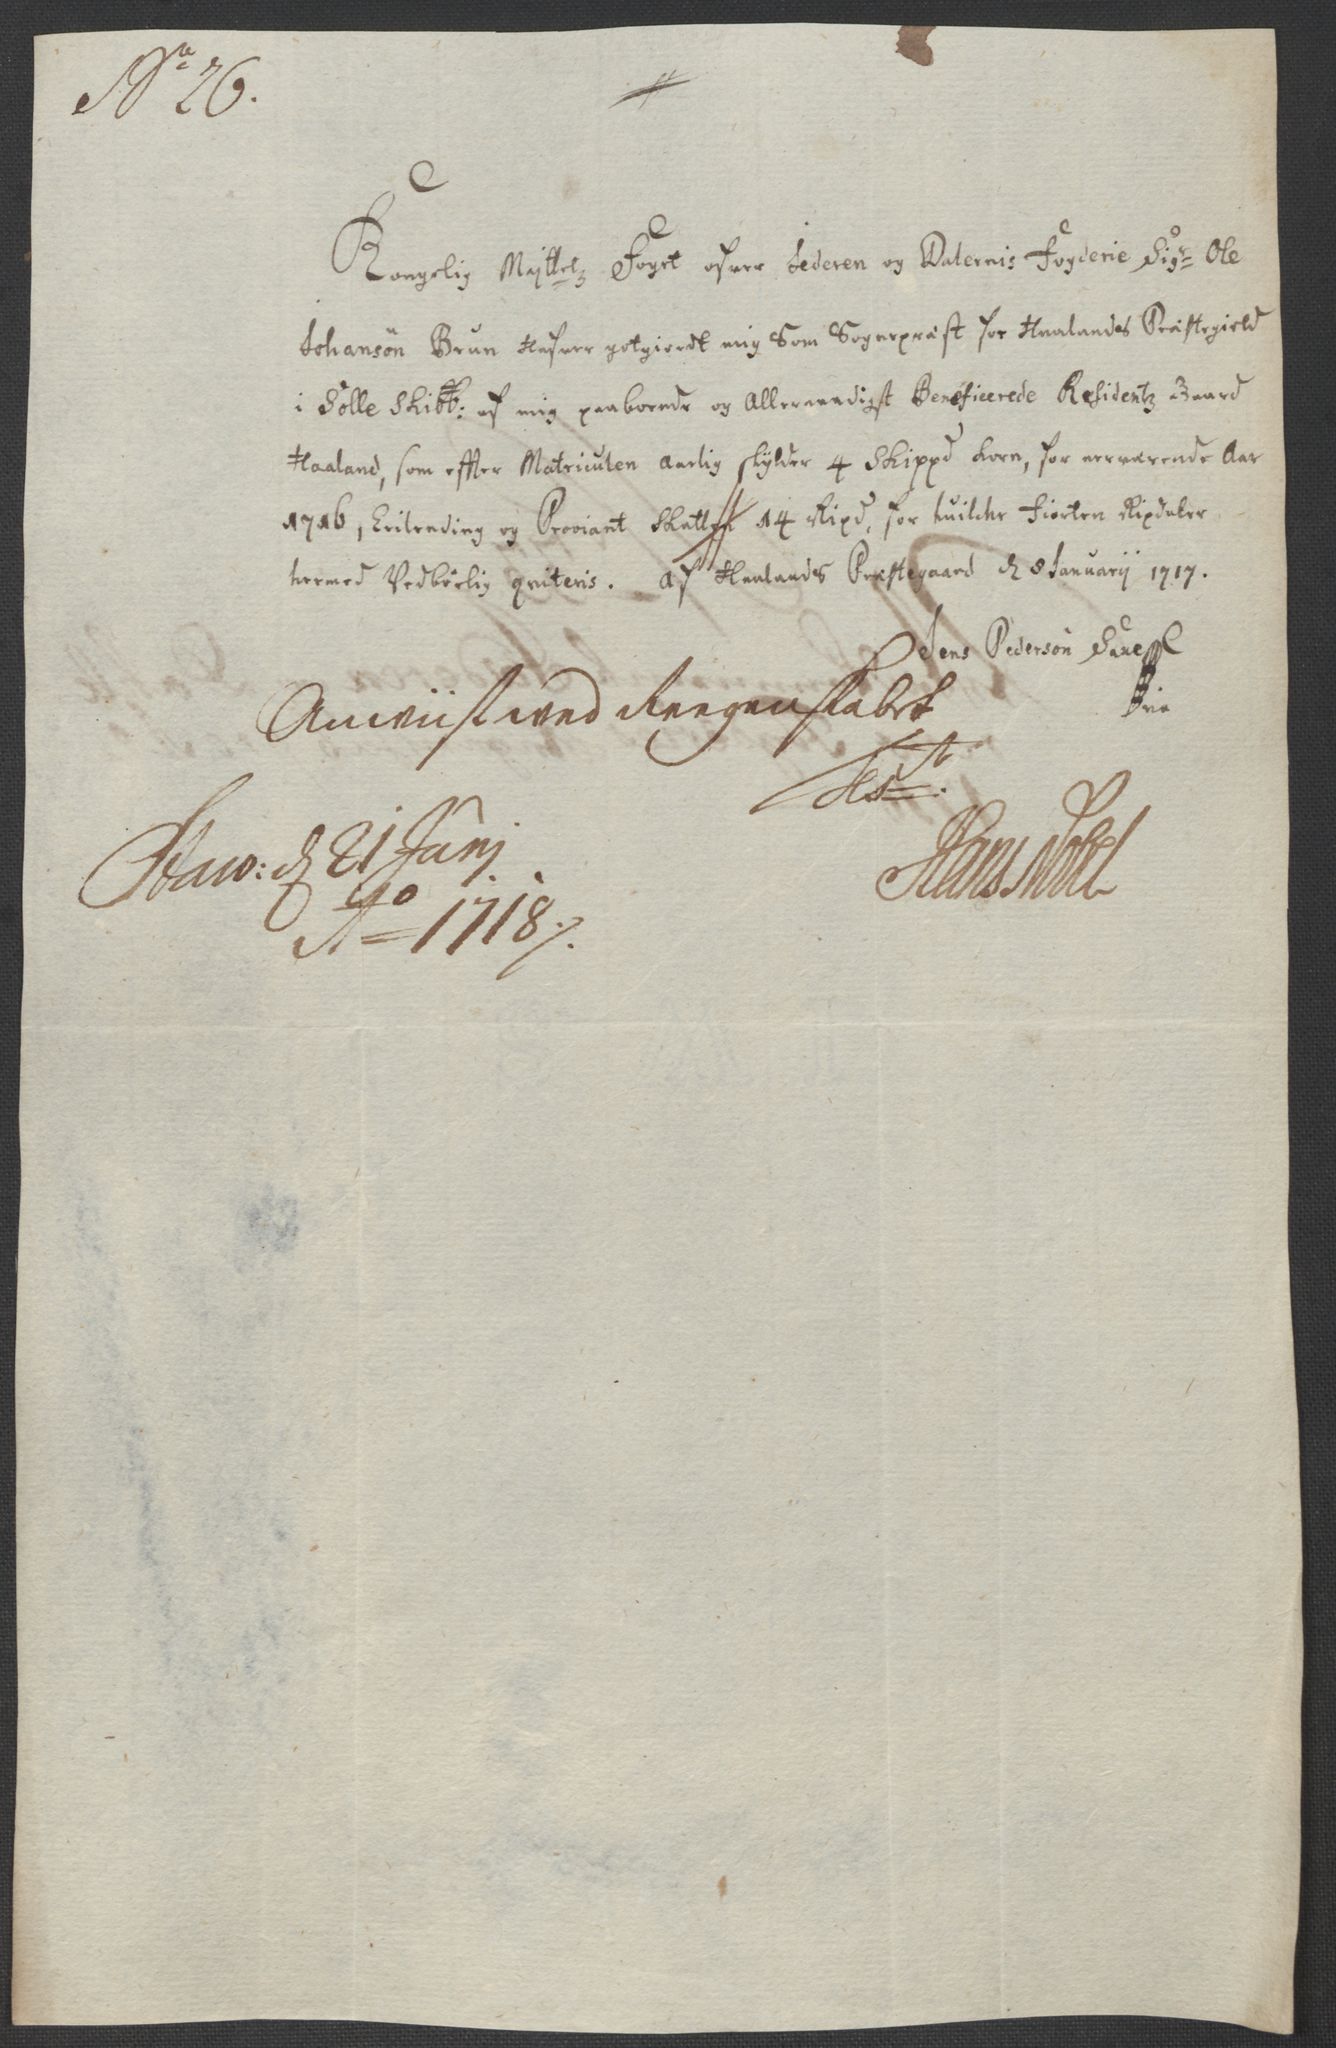 No 26.
Kongelig Mayttz Foget ofver Jederen og Dalernis Fogderie Sigr Ole
Johansøn Brun hafver gotgiordt mig Som Sogneprest for Haalandes Præstegield
i Solle Skibb: af mig paaboende og Allernaadigst Beneficerede Residentz Gaard
Haaland, som effter Matriculen Aarlig skylder 4 Skippd Korn, for nerværende Aar
1716, Leilending og Proviant Skatten 14 Rixd, for huilche Fiorten Rixdaler
hermed Vedbørlig qviteris. Af Haalandes Præstegaard d 8 Januarij 1717.
Jens Pedersøn
Anviist ved Reegenskabet
Test.
Staw: d 21 Junj
Ao 1718
Hans Nobel